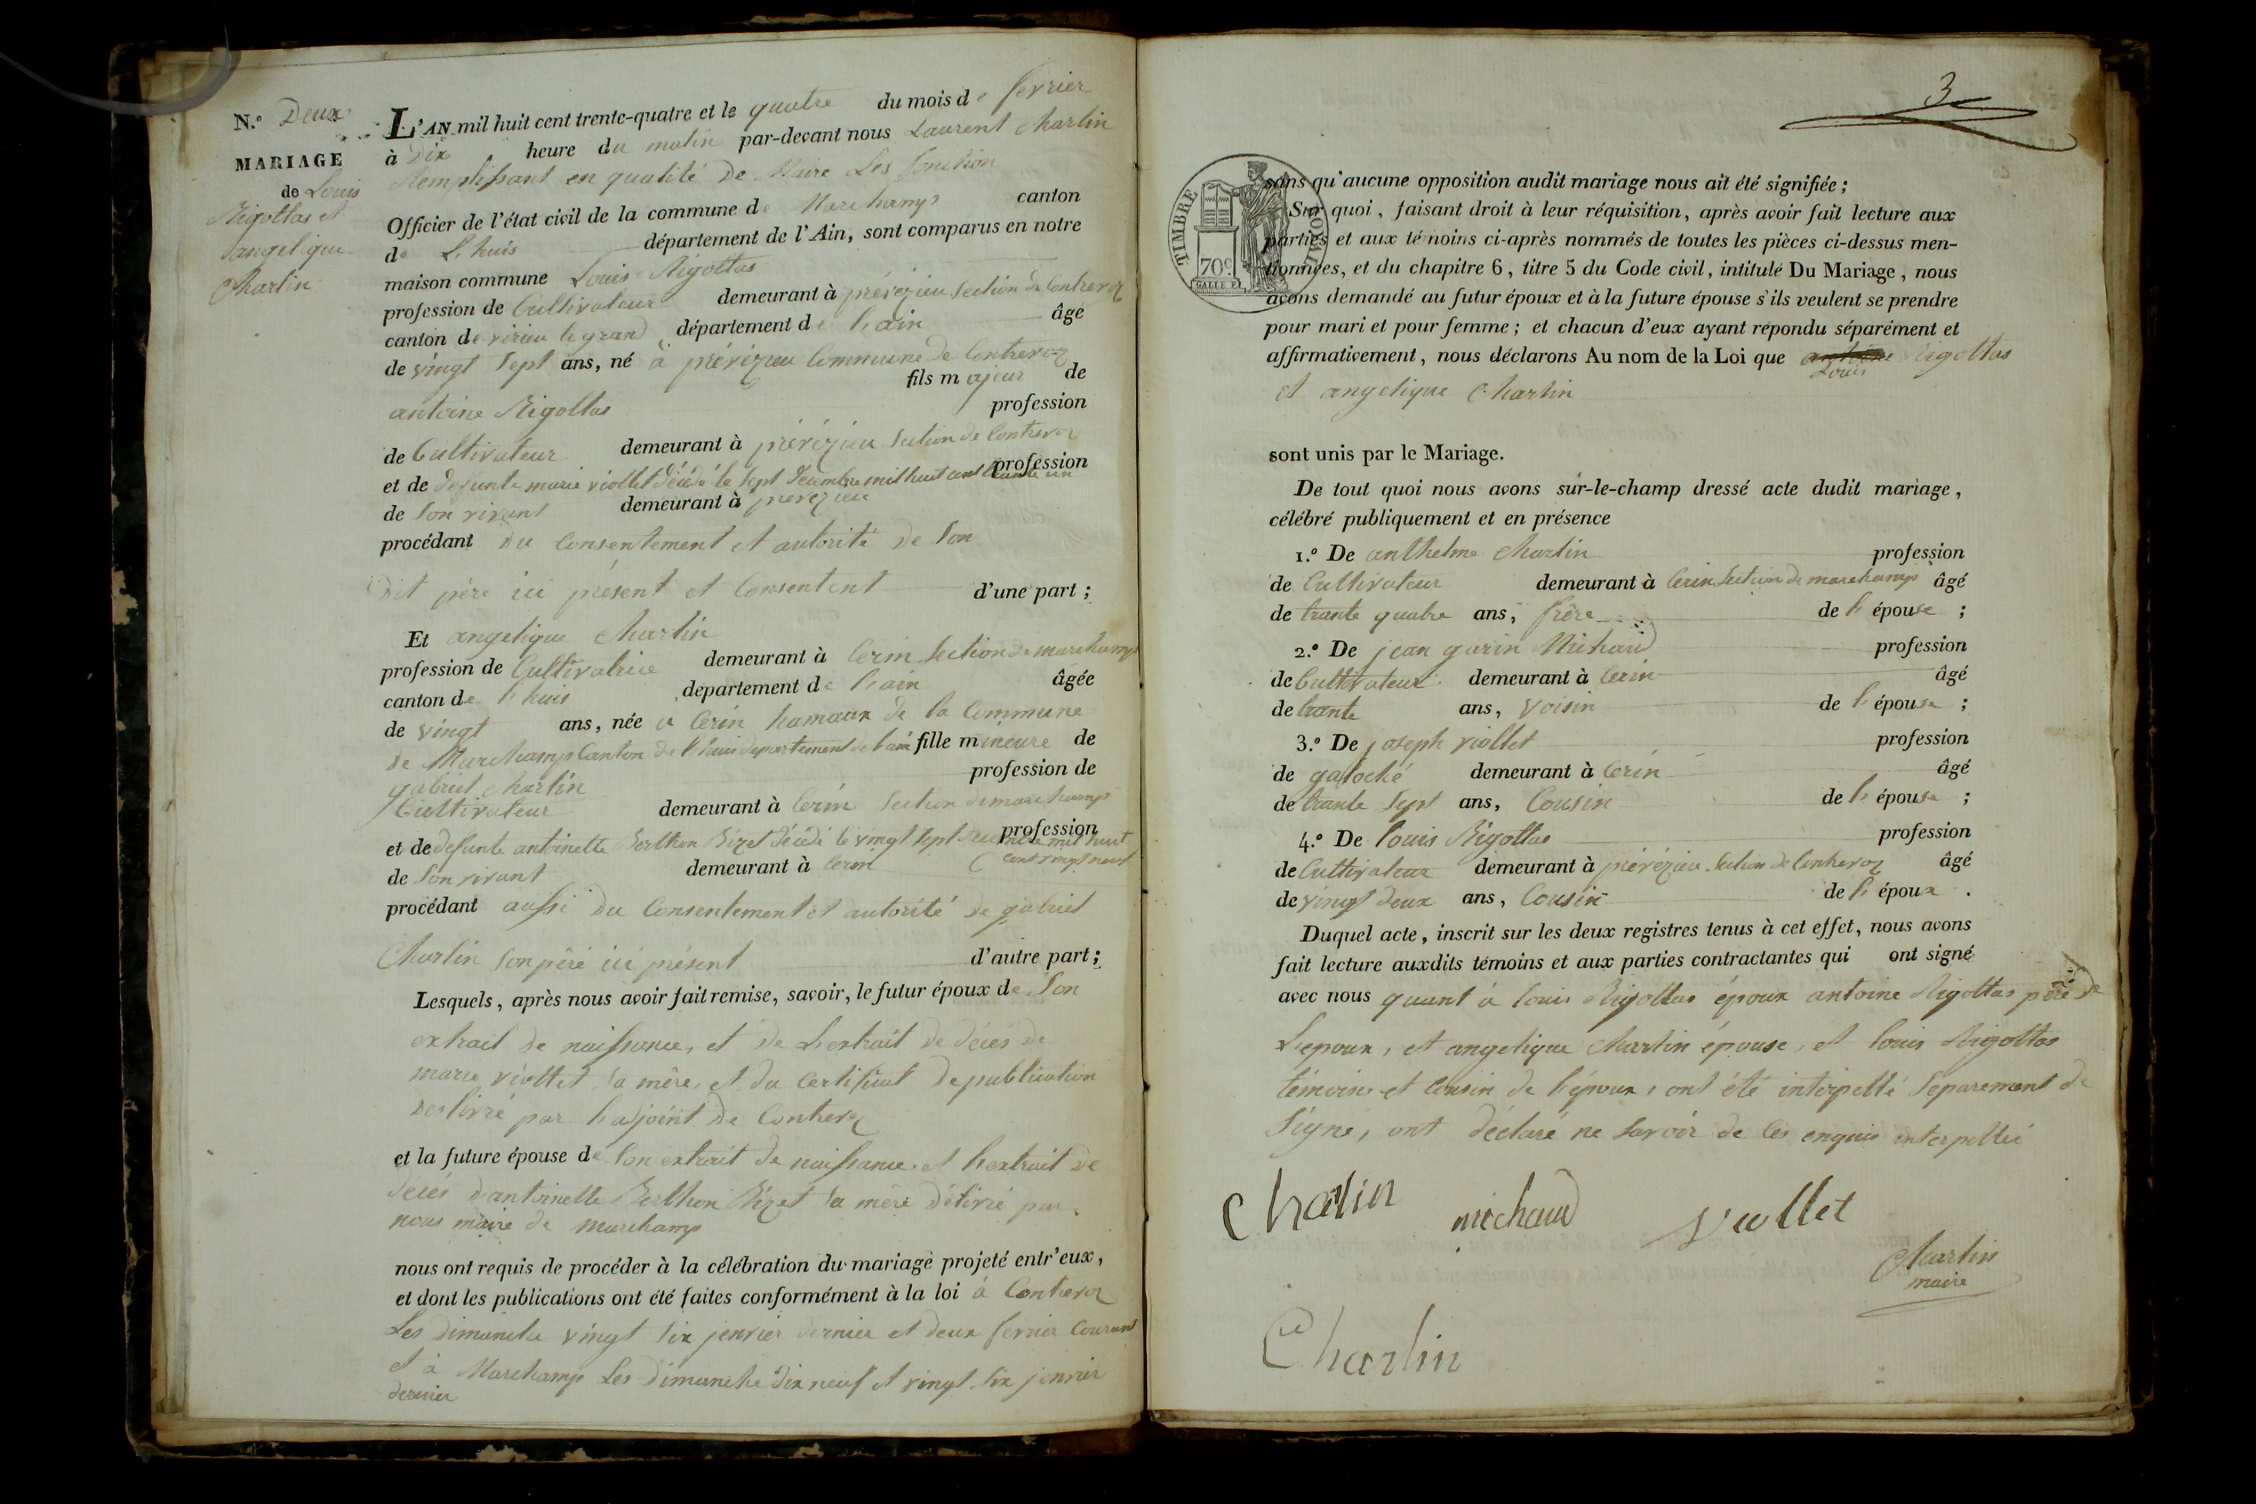 N.º Deux
MARIAGE
de Louis
Rigottas et
angelique
Charlin
L'AN mil huit cent trente-quatre et le quatre du mois de fevrier
à Dix heure du matin par-devant nous Laurent Charlin
Remplissant en qualité de Maire Les fonction
Officier de l'état civil de la commune de Marchamps canton
de L'huis département de l'Ain, sont comparus en notre
maison commune Louis Rigottas
profession de Cultivateur demeurant à prérézieu section de Contrevoz
canton de virieu le grand département de l'ain âgé
de vingt sept ans, né à prérézieu Commune de Contrevoz
fils majeur de
antoine Rigottas
profession
de Cultivateur demeurant à prérézieu Section de Contrevoz
et de defunte marie viollet décédé le sept decembre mil huit cent trante un profession
de Son vivant demeurant à prérézieu
procédant du Consentement et autorité de Son
Dit père ici présent et Consentent d'une part ;
Et angelique Charlin
profession de Cultivatrice demeurant à Cerin Section de marchamps
canton de l'huis département de l'ain âgée
de vingt ans, née a Cerin hamaux de la Commune
de Marchamps Canton de l'huis departement de l'ain fille mineure de
gabriel Charlin profession de
Cultivateur demeurant à Cerin Section de marchamps
et de defunte antoinette Berthon Bizet décédé le vingt sept decembre mil huit profession
cent vingt neuf
de Son vivant demeurant à Cerin
procédant aussi du Consentement et autorité de gabriel
Charlin son père ici présent d'autre part ;
Lesquels, après nous avoir fait remise, savoir, le futur époux de Son
extrait de naissance, et de L'extrait de décés de
marie viollet sa mère, et du Certificat de publication
delivré par l'adjoint de Contrevoz
et la future épouse de Son extrait de naissance et l'extrait de
décés d'antoinette Berthon Bizet sa mère délivré par
nous maire de marchamp
nous ont requis de procéder à la célébration du mariage projeté entr'eux,
et dont les publications ont été faites conformément à la loi à Contrevoz
Les dimanche vingt six jenvier dernier et deux fevrier Courant
et à Marchamps Les Dimanche dix neuf et vingt six jenvier
dernier
3
TIMBRE ROYAL
70c.
GALLE F.
sans qu'aucune opposition audit mariage nous ait été signifiée ;
Sur quoi, faisant droit à leur réquisition, après avoir fait lecture aux
parties et aux témoins ci-après nommés de toutes les pièces ci-dessus men-
tionnées, et du chapitre 6, titre 5 du Code civil, intitulé Du Mariage, nous
avons demandé au futur époux et à la future épouse s'ils veulent se prendre
pour mari et pour femme ; et chacun d'eux ayant répondu séparément et
affirmativement, nous déclarons Au nom de la Loi que antoine Rigottas
Louis
et angelique Charlin
sont unis par le Mariage.
De tout quoi nous avons sur-le-champ dressé acte dudit mariage,
célébré publiquement et en présence
1.º De anthelme Charlin profession
de Cultivateur demeurant à Cerin Section de marchamps âgé
de trante quatre ans, frère de l'épouse ;
2.º De jean garin Michaud profession
de Cultivateur demeurant à Cerin âgé
de trante ans, voisin de l'épouse ;
3.º De joseph viollet profession
de galoché demeurant à Cerin âgé
de trante sept ans, Cousin de l'épouse ;
4.º De louis Rigottas profession
de Cultivateur demeurant à prérézieu Section de Contrevoz âgé
de vingt deux ans, Cousin de l'époux .
Duquel acte, inscrit sur les deux registres tenus à cet effet, nous avons
fait lecture auxdits témoins et aux parties contractantes qui ont signé
avec nous quant à louis Rigottas époux antoine Rigottas père de
L'epoux, et angelique Charlin épouse, et louis Rigottas
témoin et Cousin de l'époux, ont été interpellé Séparement de
Signé, ont déclaré ne savoir de Ces enquis interpellé
Charlin michaud viollet
Charlin
maire
Charlin